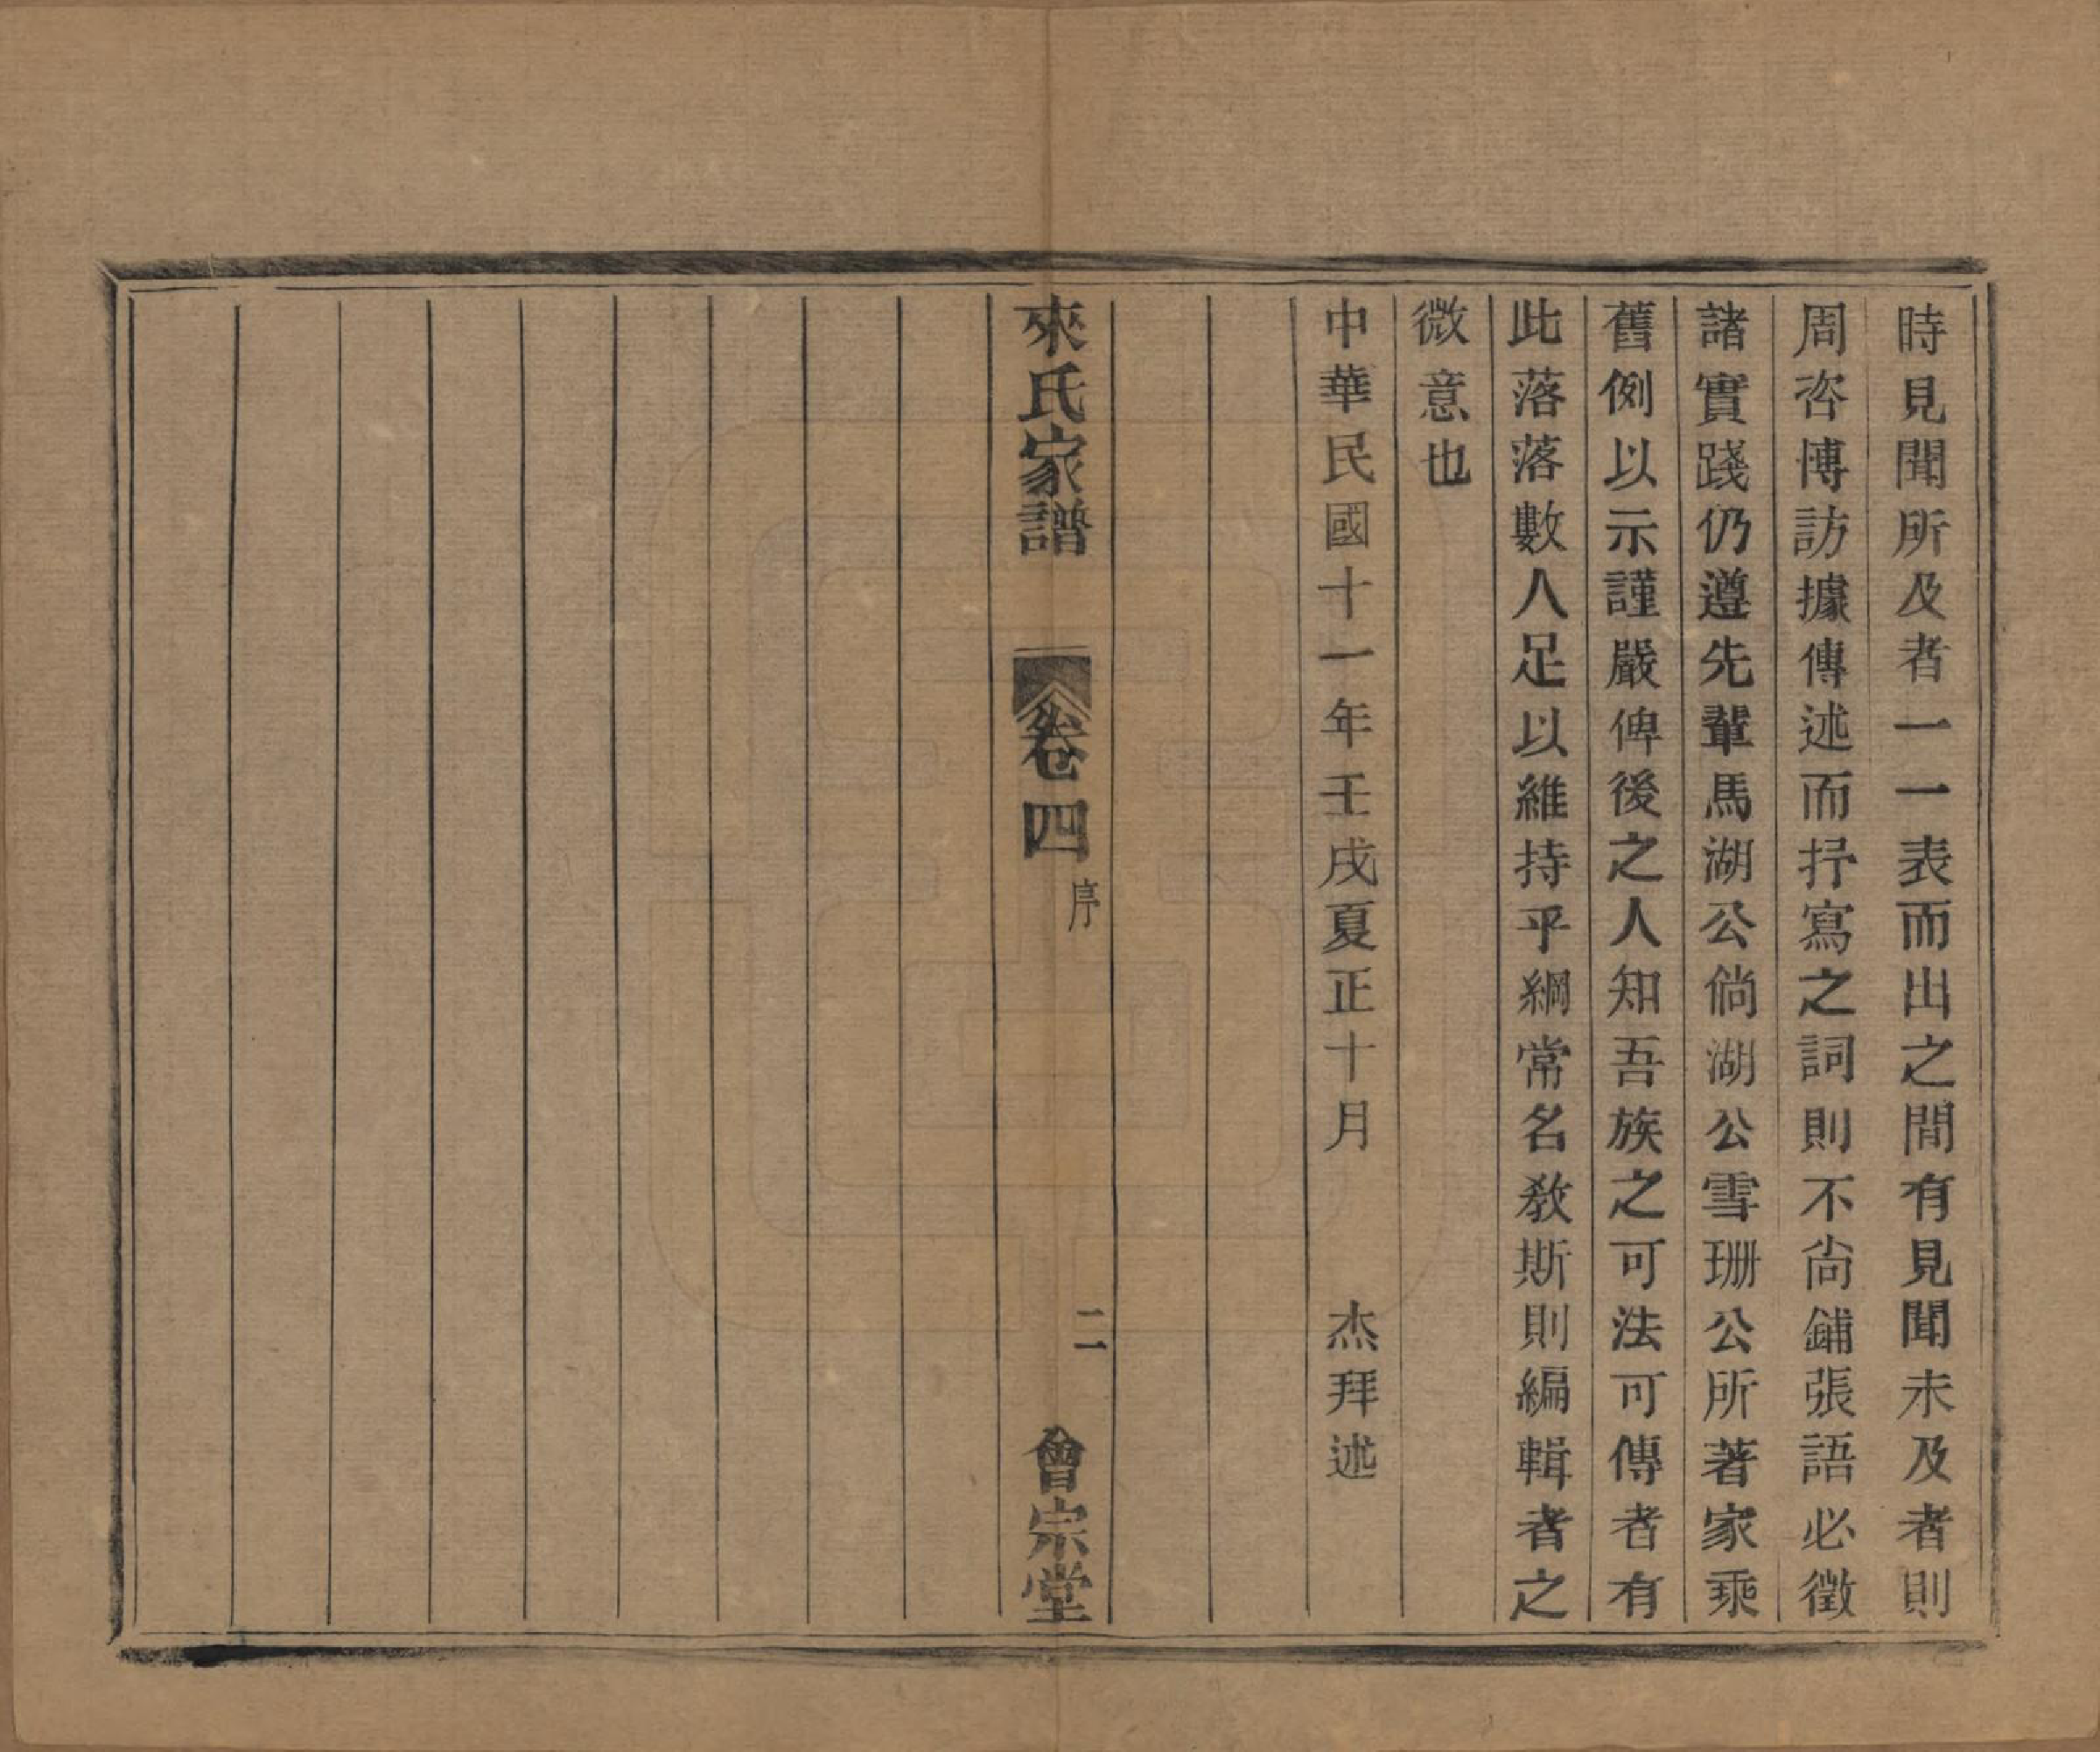 時見聞所及者一一表而出之間有見聞未及者則
周咨博訪據傳述而抒寫之詞則不尙鋪張語必徵
諸實踐仍遵先輩馬湖公倘湖公雪珊公所著家乘
舊例以示謹嚴俾後之人知吾族之可法可傳者有
此落落數人足以維持乎綱常名敎斯則編輯者之
微意也
中華民國十一年壬戌夏正十月 杰拜述
來氏家譜 卷四 序 二 會宗堂